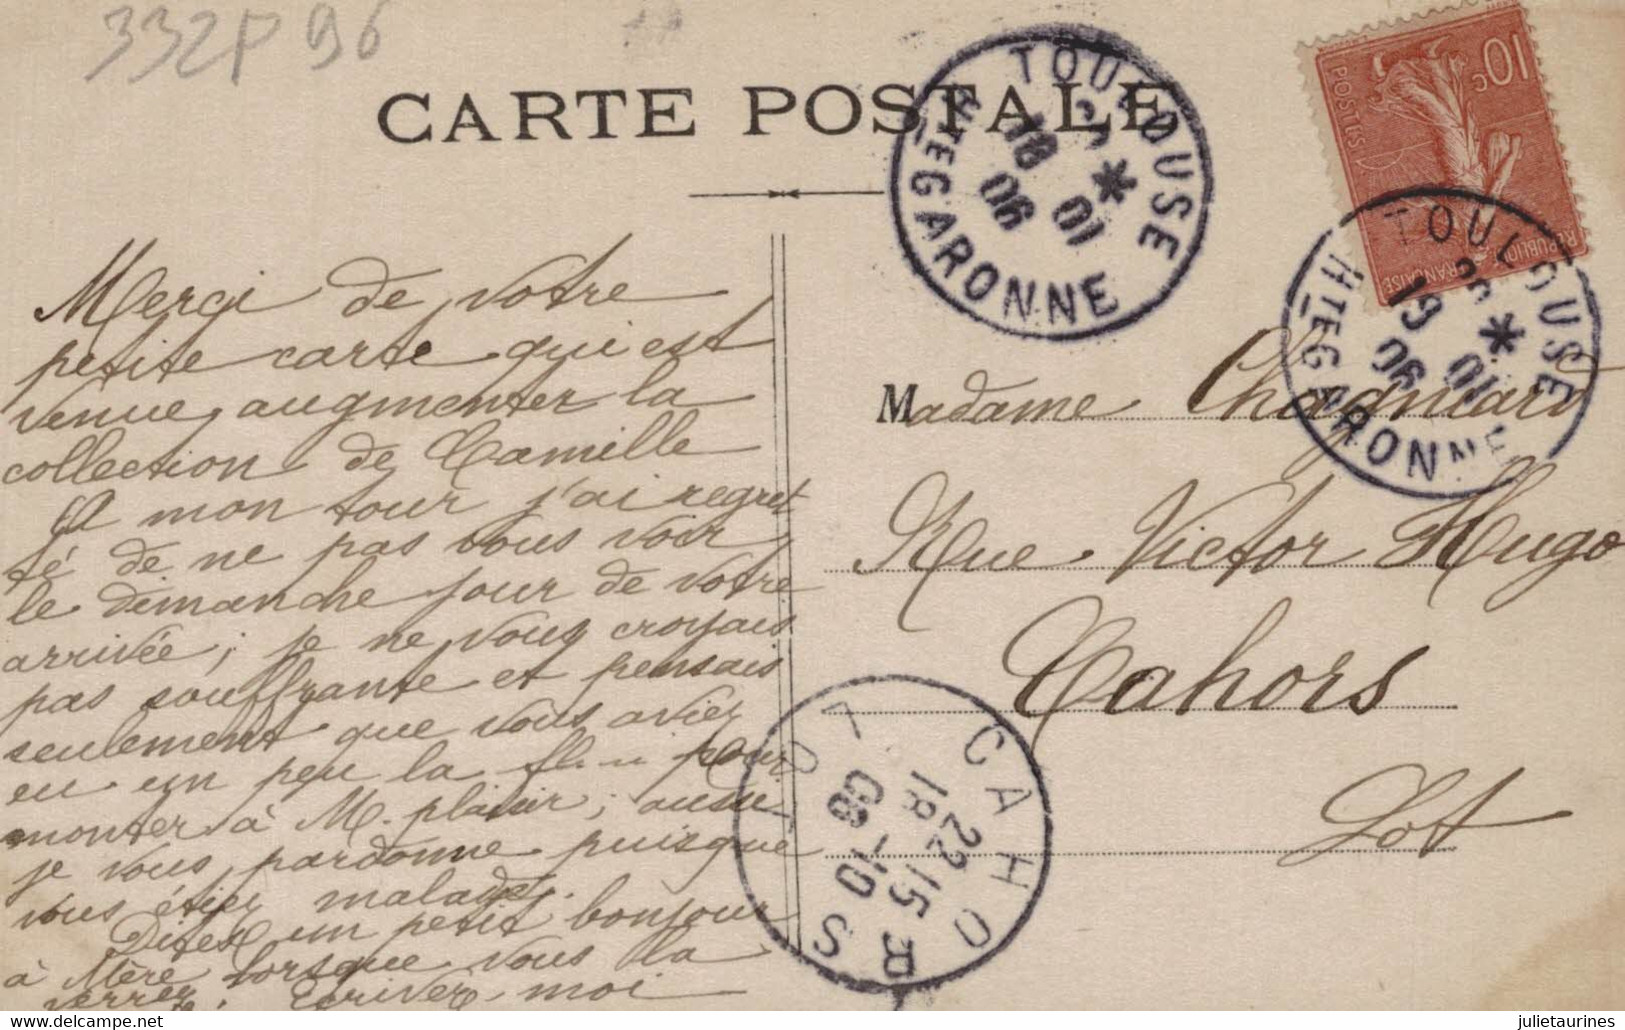 332P 96
CARTE POSTALE
TOULOUSE
HTE GARONNE
18
01
06
10c
POSTES
REPUBLIQUE FRANÇAISE
TOULOUSE
HTE GARONNE
19
01
06
Merci de votre
petite carte qui est
venue augmenter la
collection de Camille
A mon tour j'ai regret
té de ne pas vous voir
le dimanche jour de votre
arrivée; je ne vous croyais
pas souffrante et pensais
seulement que vous aviez
eu un peu la pour
monter à M. plaisir; aussi
je vous pardonne puisque
vous étiez malades.
Dites un petit bonjour
à Mère lorsque vous la
verrez. Ecrivez moi
Madame Chagniard
Rue Victor Hugo
Cahors
Lot
CAHORS
LOT
22 15
18 -10
06
julietaurines